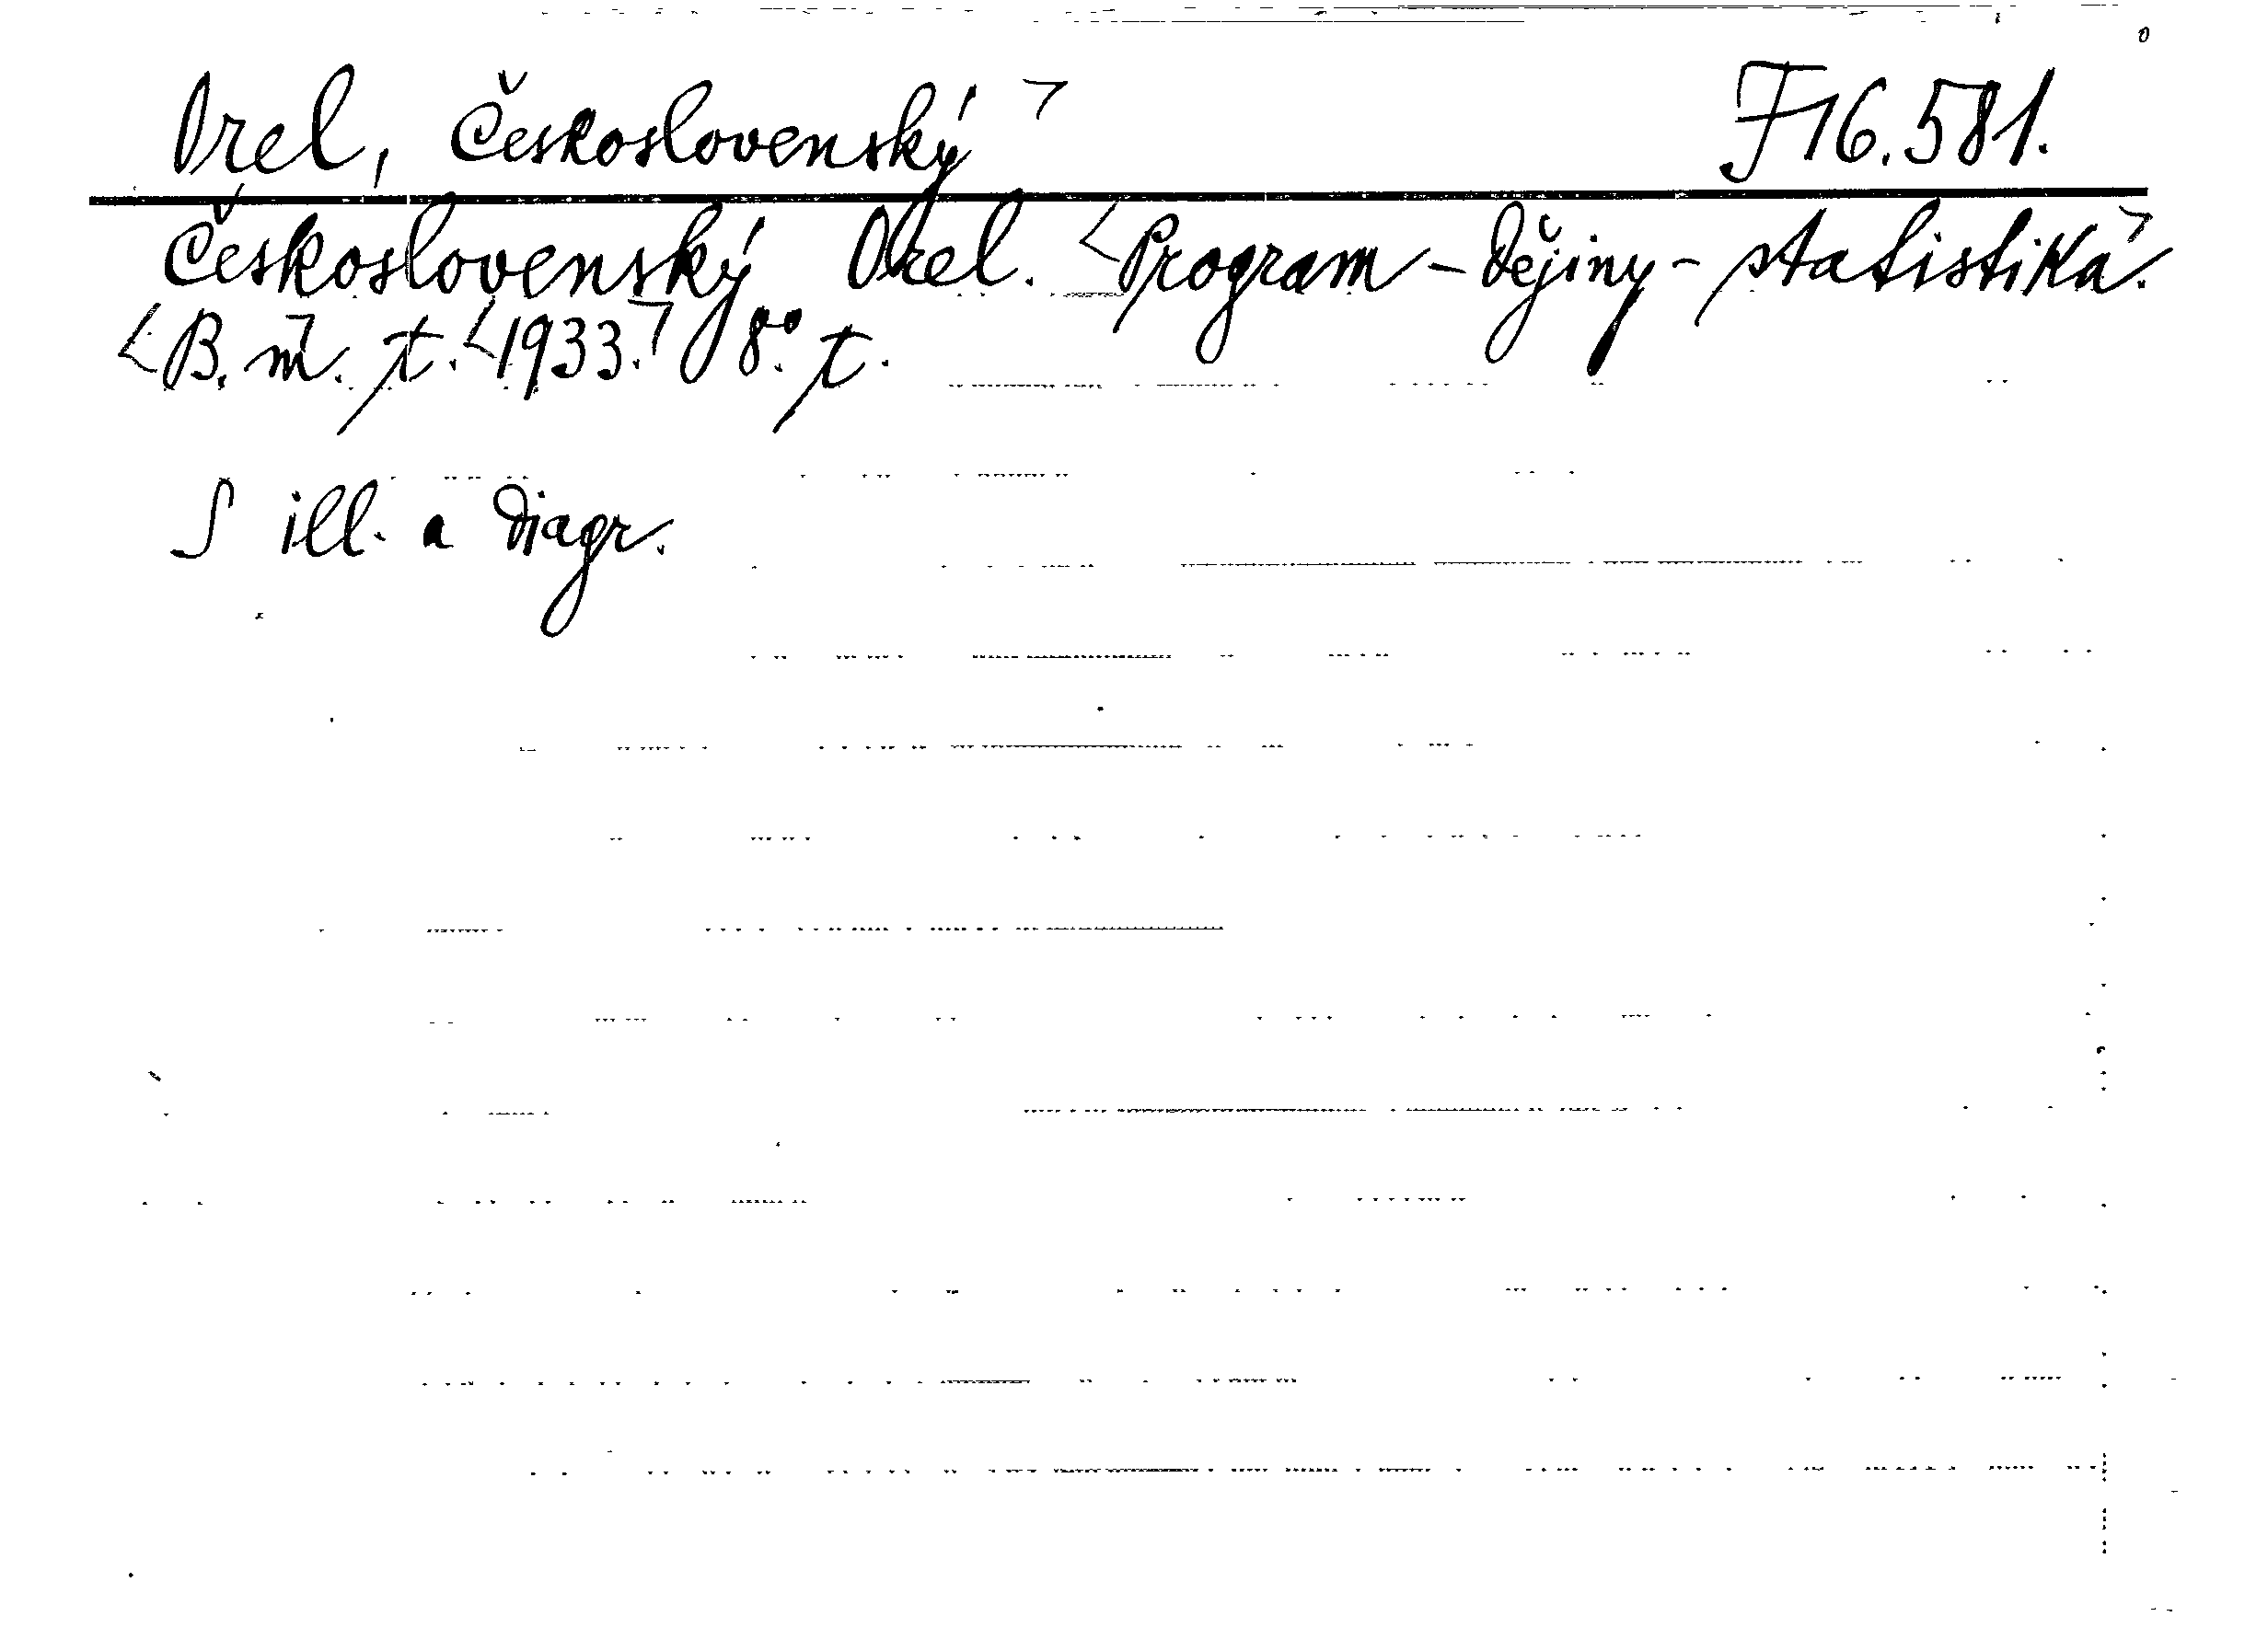 Orel, Československý ⌝ F 16.581.
Československý Orel. <Program - dějiny - statistika⌝.
<B. m⌝. t. <1933.⌝ 8°. t.
S ill. a diagr.